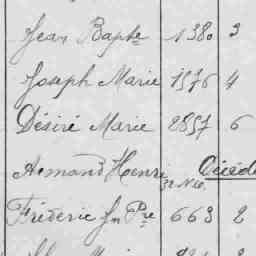 Jean Bapte 1380 2
Joseph Marie 1576 4
Désiré Marie 2857 6
Armand Henri Décédé
Fréderic Jn Pre 663 2